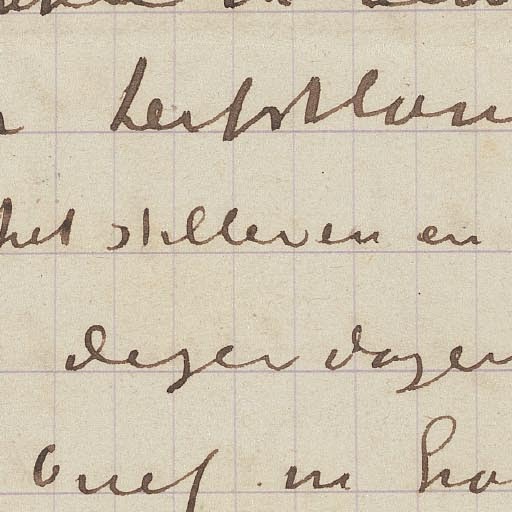 herfstlan
het stilleven en
dezer dagen
brief in ha